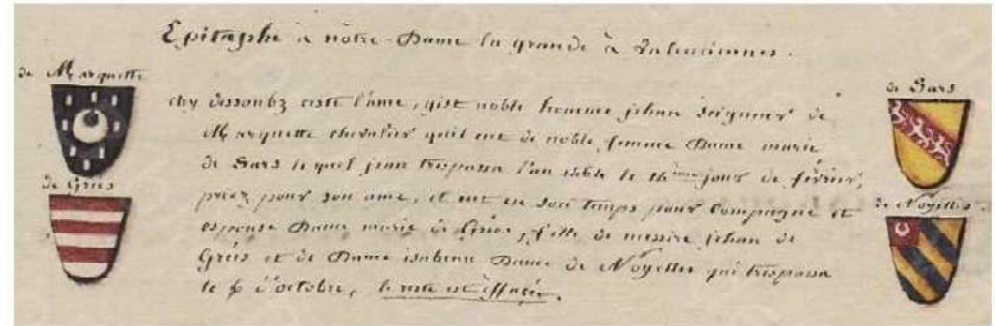 Epitaphe à notre-Dame la grande à Valenciennes.
de Marquette
de Sars
chy dessoubz ceste lame, gist noble homme jehan Seigneur de
Marquette chevalier quil eut de noble femme Dame marie
de Sars lequel jean trespassa l'an le jour de février,
de Gréis
priez pour son ame, il eut en son temps pour Compagne et
de Noyelles
espouse Dame marie de Gréis, fille de messire jehan de
Gréis et de Dame isabeau Dame de Noyelles qui trespassa
le 6 d'octobre, le reste est effacé.